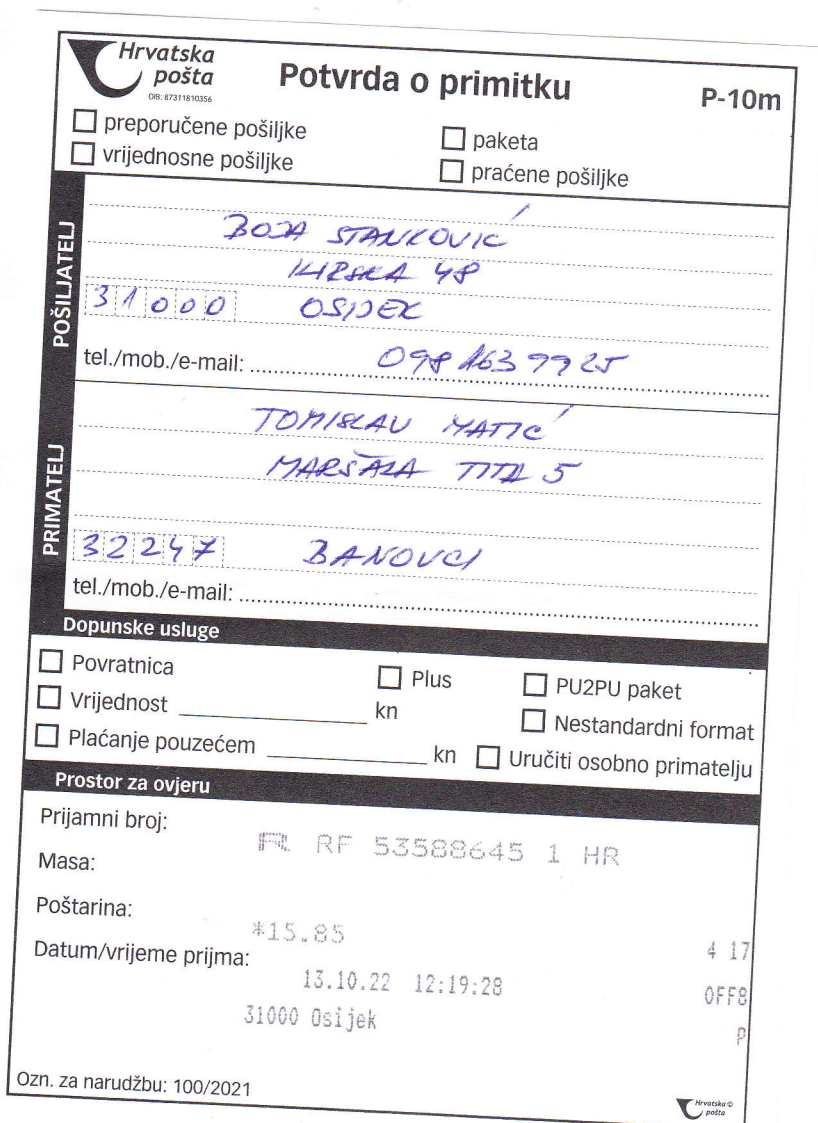 Hrvatska
pošta
OIB: 87311810356
Potvrda o primitku
P-10m
preporučene pošiljke
paketa
vrijednosne pošiljke
praćene pošiljke
POŠILJATELJ
BOJA STANKOVIĆ
ILIRSKA 48
31000 OSIJEK
tel./mob./e-mail: 098 1639925
PRIMATELJ
TOMISLAV MATIĆ
MARŠALA TITA 5
32247 BANOVCI
tel./mob./e-mail:
Dopunske usluge
Povratnica
Plus
PU2PU paket
Vrijednost kn
Nestandardni format
Plaćanje pouzećem kn
Uručiti osobno primatelju
Prostor za ovjeru
Prijamni broj:
R RF 53588645 1 HR
Masa:
Poštarina:
*15.85
4 17
Datum/vrijeme prijma:
13.10.22 12:19:28
OFF8
31000 Osijek
P
Ozn. za narudžbu: 100/2021
Hrvatska ©
pošta